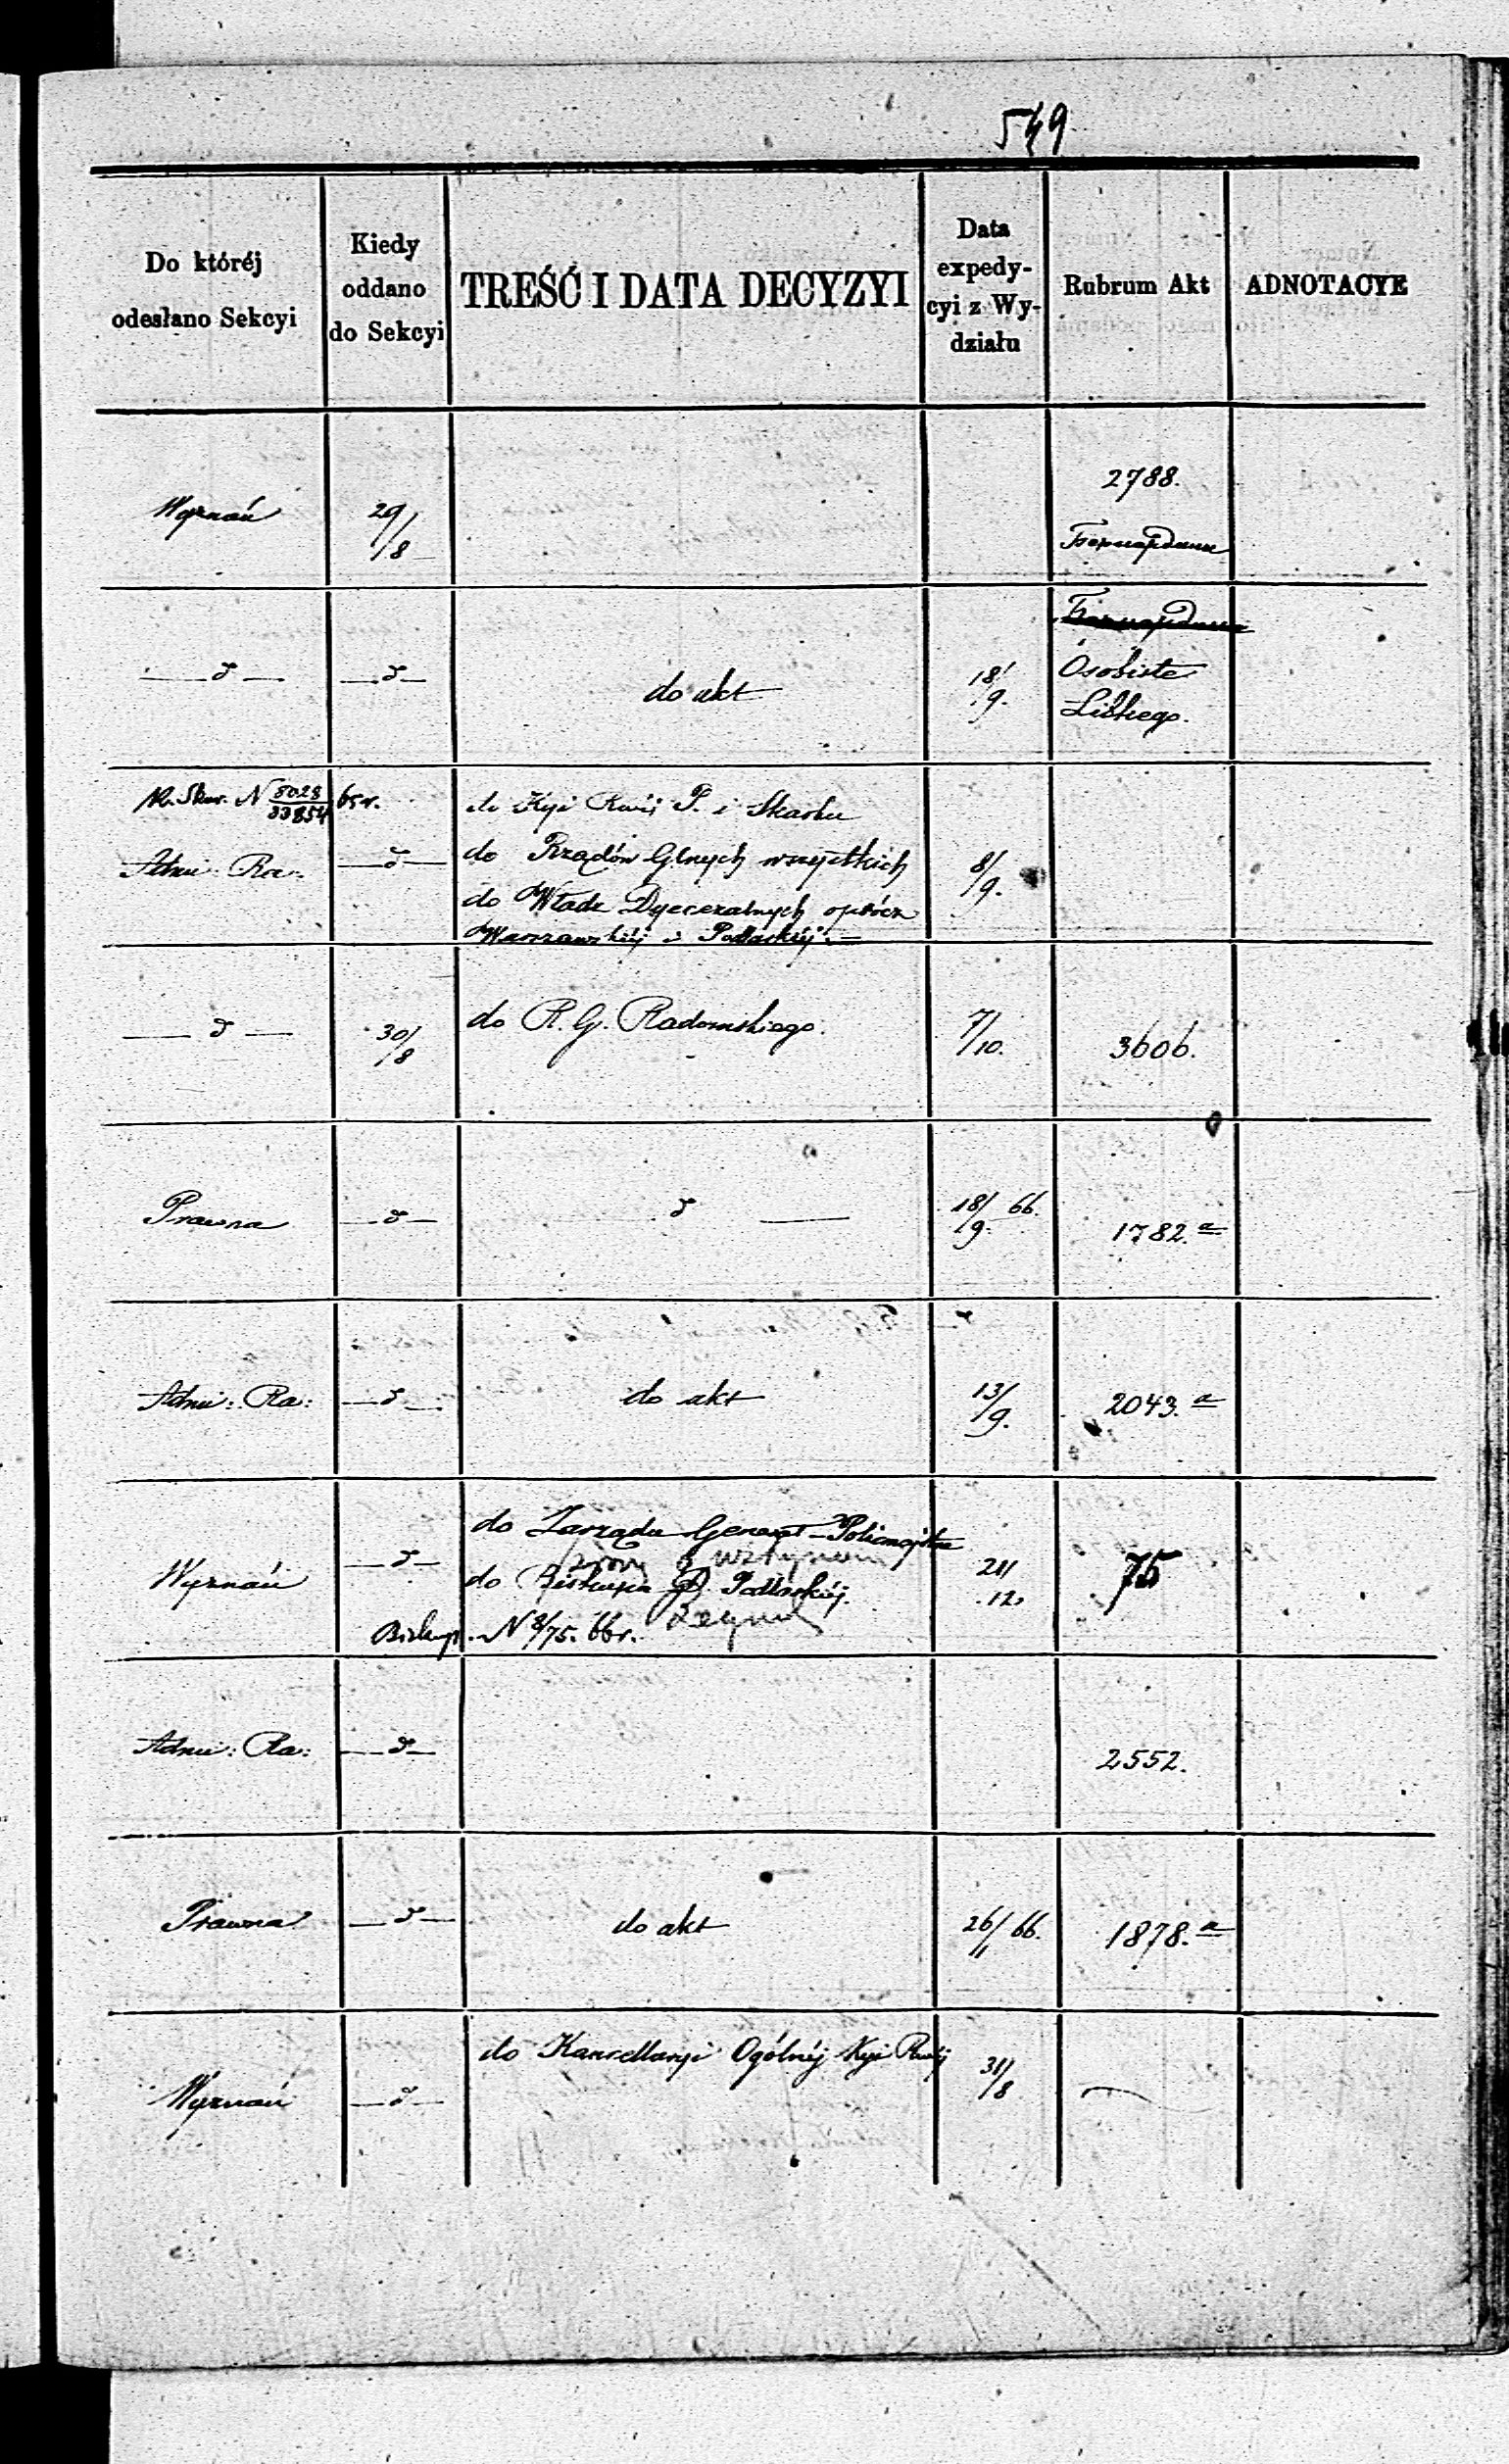 549
Do któréj odesłano Sekcyi | Kiedy oddano do Sekcyi | TREŚĆ I DATA DECYZYI | Data expedycyi z Wydziału | Rubrum Akt | ADNOTACYE
Wyznań | 29/8 | | | 2788.
Бернардини
Бернардини
— d — | — d — | do akt | 18/9. | Osobiste
Liskiego.
Skar. N 5028/33854 65 r. | do Kyi Rwéj P. i Skarbu
Admi: Ra: | — d — | do Rządów Glnych wszystkich | 8/9.
do Władz Dyecezalnych oprócz
Warszawskiéj i Podlaskiéj. —
— d — | 30/8 | do R. G. Radomskiego. | 7/10. | 3606.
Prawna | — d — | d — | 18/9. 66. | 1782. a
Admi: Ra: | — d — | do akt | 13/9. | 2043. a
do Zarządu Generał-Policmajstra
Wyznań | — d — | do Biskupa D. Podlaskiéj. | 21/12. | 75
Biskup. N 8/75. 66 r.
Admi: Ra: | — d — | | | 2552.
Prawna | — d — | do akt | 26/1 66. | 1878. a
Wyznań | — d — | do Kancellaryi Ogólnéj Kyi Rwéj | 31/8 | —